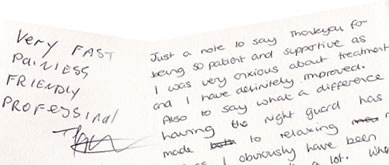 Very FAST
PAINLESS
FRIENDLY
PROFESSINAL
Just a note to say Thankyou for
being so patient and supportive as
I was very anxious about treatment
and I have definitely improved.
Also to say what a difference
having the night guard has
made to relaxing
I obviously have been
lot. Who